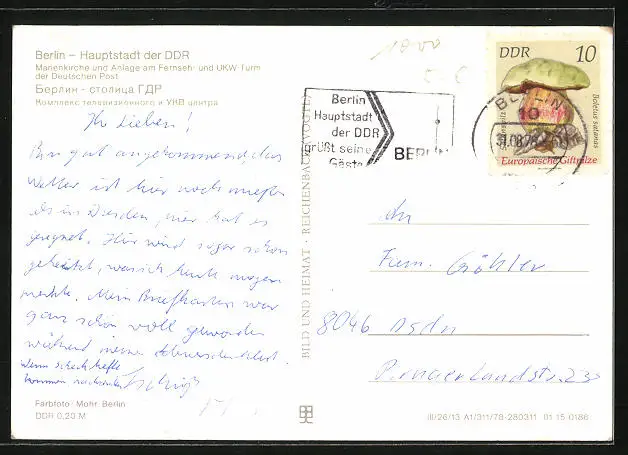 Berlin – Hauptstadt der DDR
Marienkirche und Anlage am Fernseh- und UKW-Turm
der Deutschen Post
Берлин - столица ГДР
Комплекс телевизионного и УКВ центра
Ihr Lieben!
Bin gut angekommen, das
Wetter ist hier noch
als in Dresden, hier hat es
geregnet. Hier wird sogar schon
geheizt, was ich heute morgen
merkte. Mein Briefkasten war
ganz schön voll geworden
während meiner
Wenn Scheckhefte
kommen
Farbfoto: Mohr, Berlin
DDR 0,20 M
BILD UND HEIMAT · REICHENBACH (VOGTL)
10,00
Berlin
Hauptstadt
der DDR
grüßt seine
Gäste
BERLIN
DDR 10
BERLIN
10
Boletus satanas
Europäische Giftpilze
An
Fam. Göhler
8046 Dsdn
Pirnaer Landstr. 23
III/26/13 A1/311/78-280311 01 15 0186